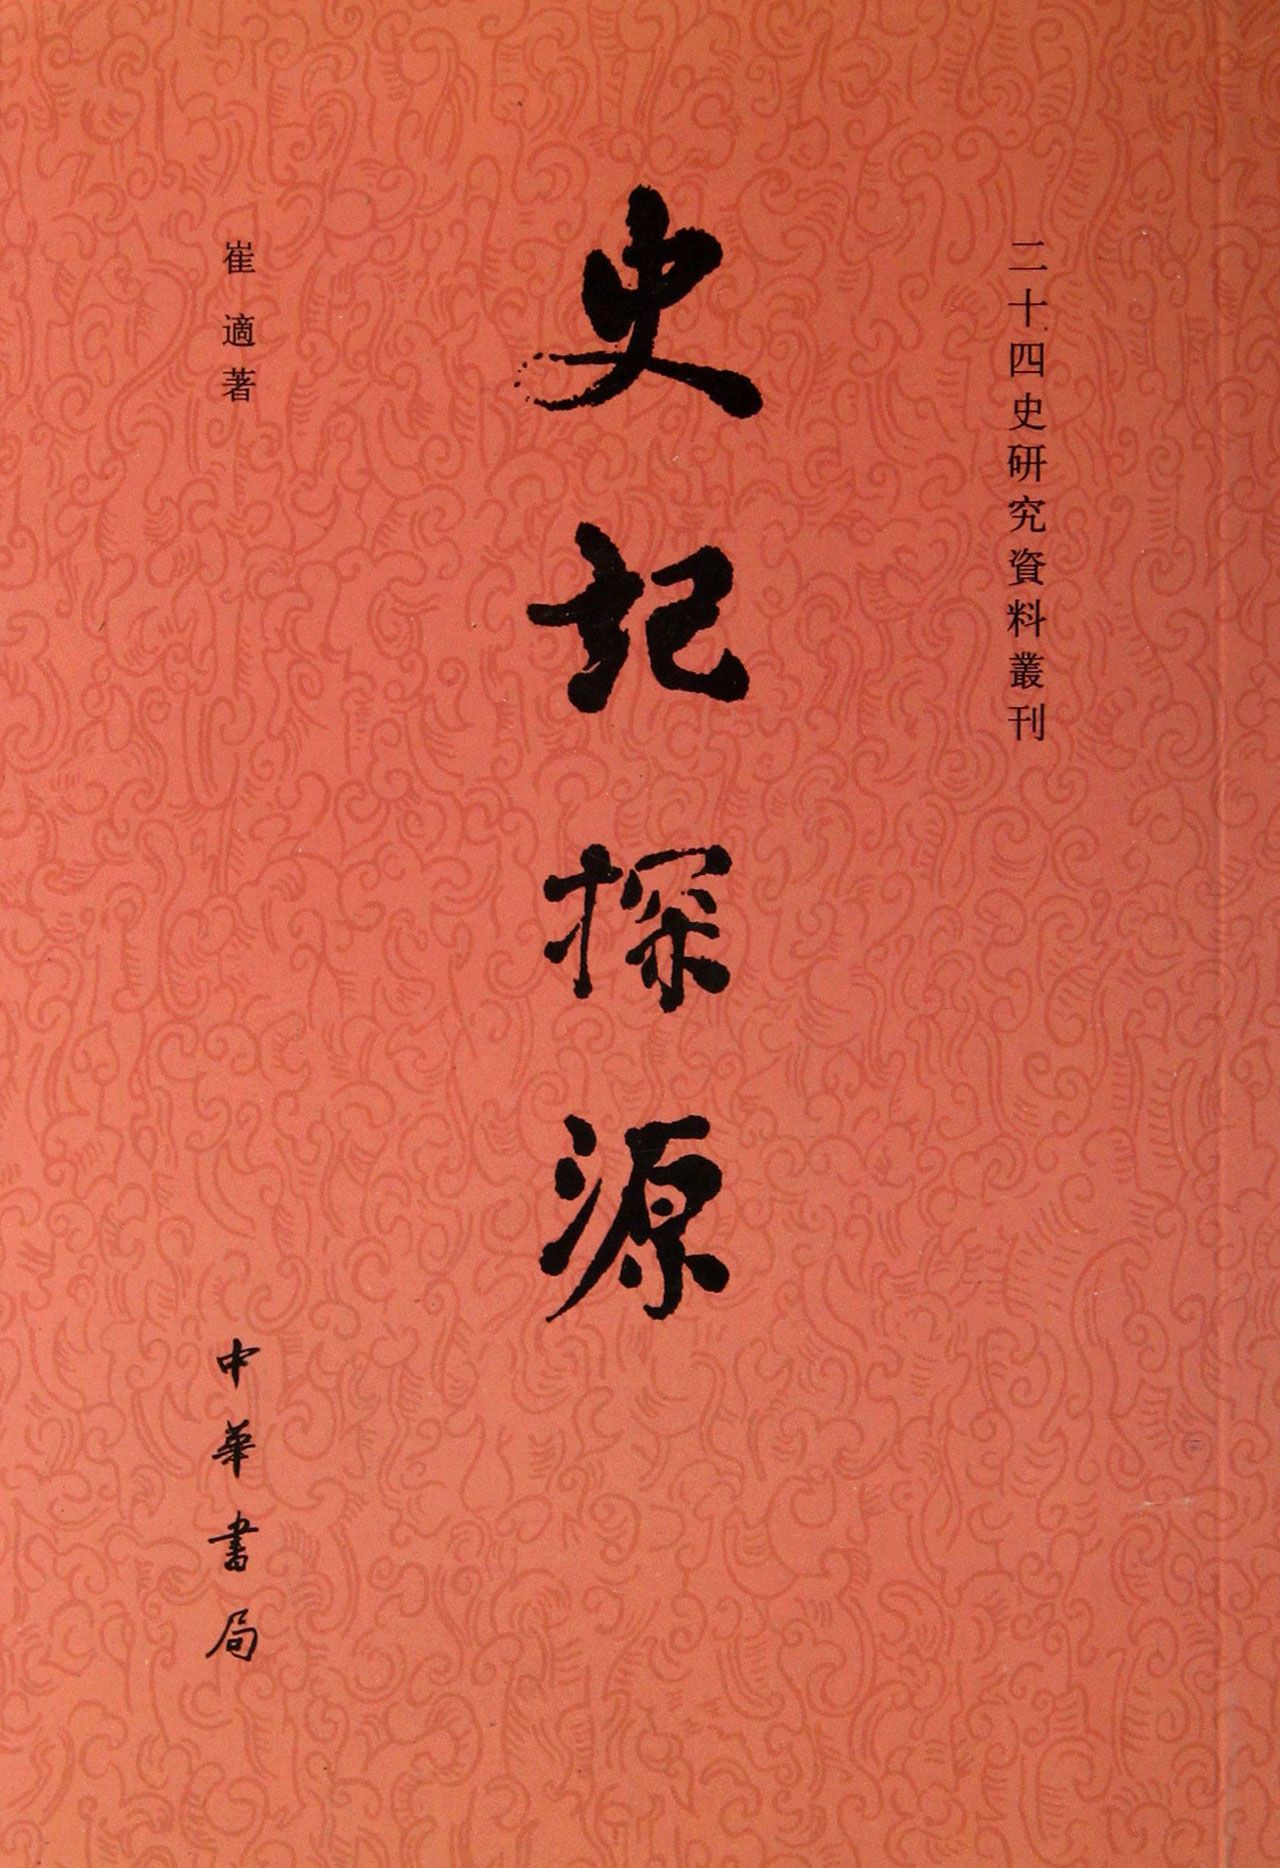 二十四史研究資料叢刊
史記探源
崔適著
中華書局